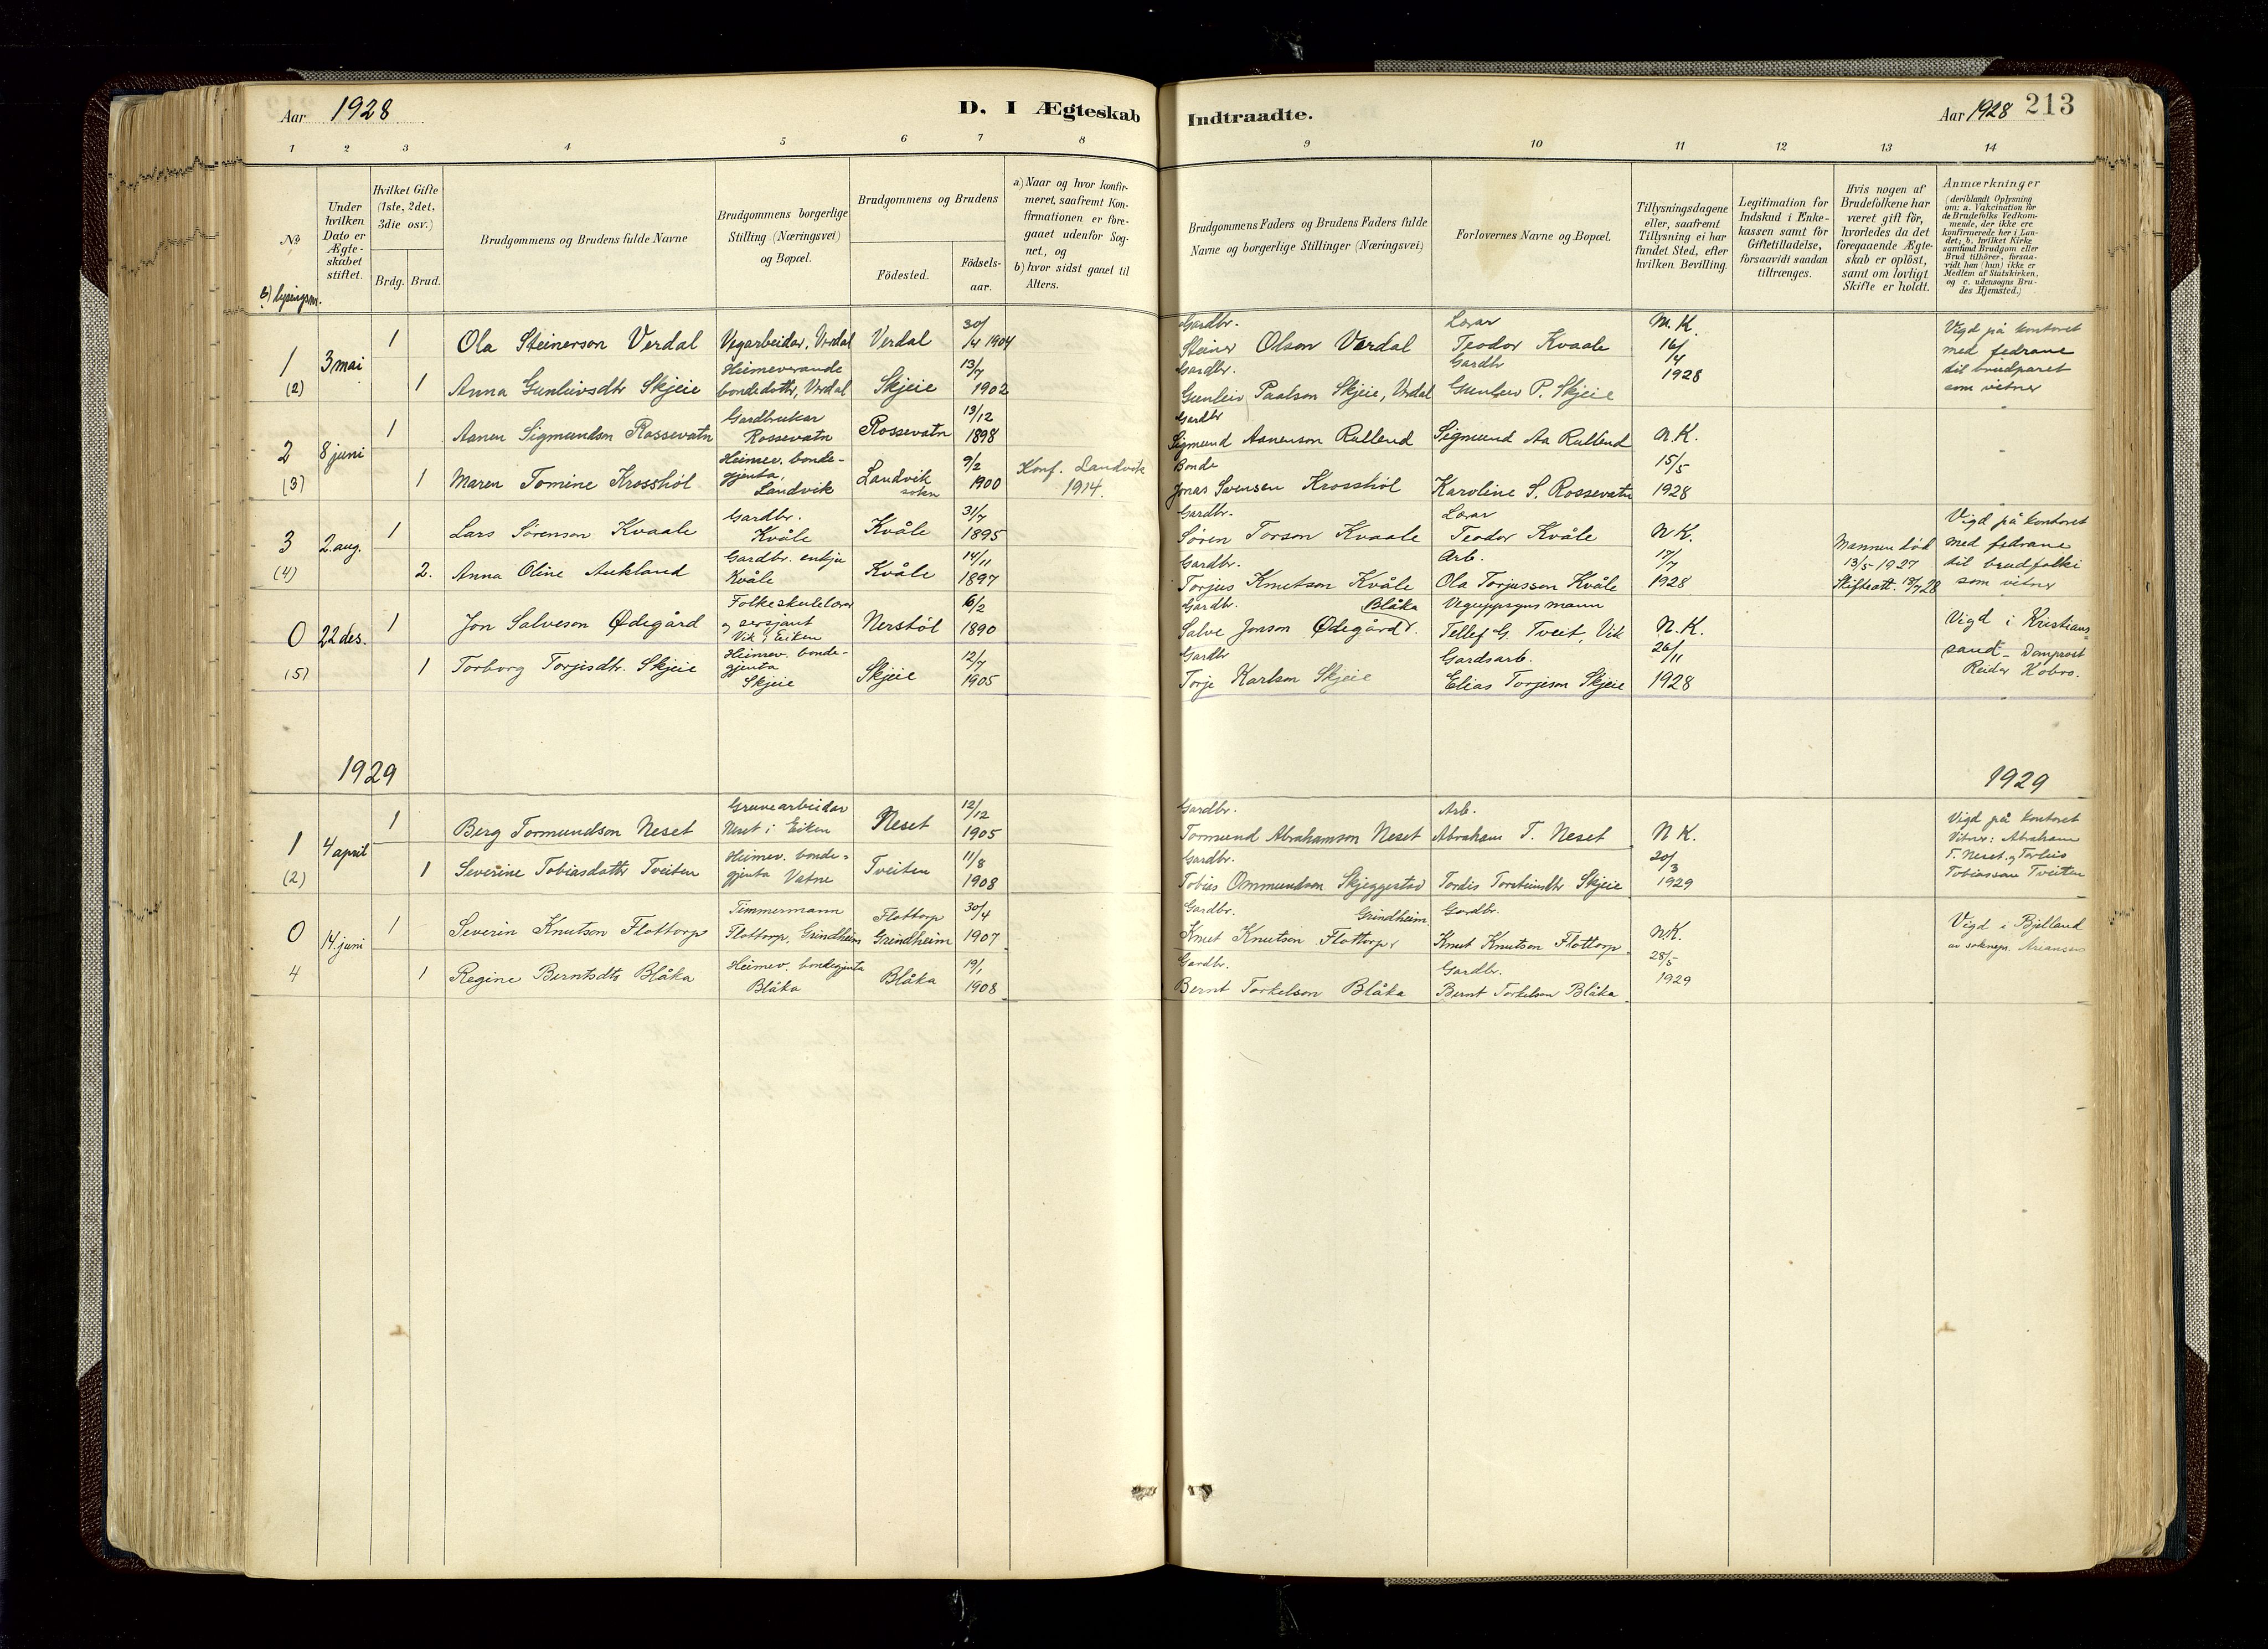 Aar 1928
D. I Ægteskab
Indtraadte.
Aar 1928 213
1 2 3 4 5 6 7 8
9 10 11 12 13 14
No
b) lysingsnr.
Under hvilken Dato er Ægteskabet stiftet.
Hvilket Gifte (1ste, 2det, 3die osv.)
Brdg. Brud.
Brudgommens og Brudens fulde Navne
Brudgommens borgerlige Stilling (Næringsvei) og Bopæl.
Brudgommens og Brudens
Födested.
Födsels-aar.
a) Naar og hvor konfir-
meret, saafremt Kon-
firmationen er fore-
gaaet udenfor Sog-
net, og
b) hvor sidst gaaet til
Alters.
Brudgommens Faders og Brudens Faders fulde
Navne og borgerlige Stillinger (Næringsvei)
Forlovernes Navne og Bopæl.
Tillysningsdagene
eller, saafremt
Tillysning ei har
fundet Sted, efter
hvilken Bevilling.
Legitimation for
Indskud i Enke-
kassen samt for
Giftetilladelse,
forsaavidt saadan
tiltrænges.
Hvis nogen af
Brudefolkene har
været gift för,
hvorledes da det
foregaaende Ægte-
skab er oplöst,
samt om lovligt
Skifte er holdt.
Anmærkninger
(deriblandt Oplysning
om: a. Vakcination for
de Brudefolks Vedkom-
mende, der ikke ere
konfirmerede her i Lan-
det; b. hvilket Kirke-
samfund Brudgom eller
Brud tilhörer, forsaa-
vidt han (hun) ikke er
Medlem af Statskirken,
og c. udensogns Bru-
des Hjemsted.)
1 (2) 3 mai
1 Ola Steinerson Verdal Vegarbeidar, Verdal Verdal 30/4 1904
1 Anna Gunleivsdtr Skjeie Heimeverande bondedotter, Verdal Skjeie 13/7 1902
Gardbr. Steiner Olson Verdal Lærar Teodor Kvaale N. K.
Gardbr. Gunleiv Paalson Skjeie, Verdal Gardbr Gunleiv P. Skjeie 16/4 1928
Vigd på kontoret
med fedrane
til brudparet
som vitner
2 (3) 8 juni
1 Aanen Sigmundson Rossevatn Gardbrukar Rossevatn Rossevatn 13/12 1898
1 Maren Tomine Krosshöl Heimev. bonde-gjenta, Landvik Landvik sokn 9/2 1900 Konf. Landvik 1914.
Gardbr Sigmund Aanenson Rullend Sigmund Aa Rullend N. K.
Bonde Jonas Svensen Krosshöl Karoline S. Rossevatn 15/5 1928
3 (4) 2. aug.
1 Lars Sörenson Kvaale Gardbr. Kvåle Kvåle 31/7 1895
2. Anna Oline Aukland Gardbr. enkje Kvåle Kvåle 14/11 1897
Gardbr. Sören Torson Kvaale Lærar Teodor Kvåle N K.
Gardbr. Torjus Knutson Kvåle Arb. Ola Torjusson Kvåle 17/7 1928
Mannen död
13/5 1927
Skifteatt. 18/7 28
Vigd på kontoret
med fedrane
til brudfolki
som vitner
0 (5) 22 des.
1 Jon Salveson Ødegård Folkeskulelærar og sersjant Vik i Eiken Nerstöl 6/2 1890
1 Torborg Torjisdtr. Skjeie Heimev. bonde-gjenta Skjeie Skjeie 12/7 1905
Gardbr. Salve Jonson Ødegård Blåka Veguppsynsmann Tellef G. Tveit, Vik N. K.
Gardbr Torje Karlson Skjeie Gardsarb. Elias Torjeson Skjeie 26/11 1928
Vigd i Kristians-
sand - Domprost
Reidar Kobro.
1929
1929
1 (2) 4 april
1 Berg Tormundson Neset Gruvearbeidar Neset i Eiken Neset 12/12 1905
1 Severine Tobiasdotter Tveiten Heimev. bonde-gjenta Vatne Tveiten 11/8 1908
Gardbr. Tormund Abrahamson Neset Arb. Abraham T. Neset N K.
Gardbr. Tobias Ommundson Skjeggestad Tordis Torsteinsdtr Skjeie 20/3 1929
Vigd på kontoret
Vitner: Abraham
T. Neset og Torleis
Tobiasson Tveiten
0 4 14. juni
1 Severin Knutson Flottorp Timmermann Flottorp, Grindheim Flottorp Grindheim 30/4 1907
1 Regine Berntsdtr Blåka Heimev. bondegjenta Blåka Blåka 19/1 1908
Gardbr. Knut Knutson Flottorp, Grindheim Gardbr. Knut Knutson Flottorp N.K.
Gardbr. Bernt Torkelson Blåka Gardbr. Bernt Torkelson Blåka 28/5 1929
Vigd i Bjelland
av soknepr.